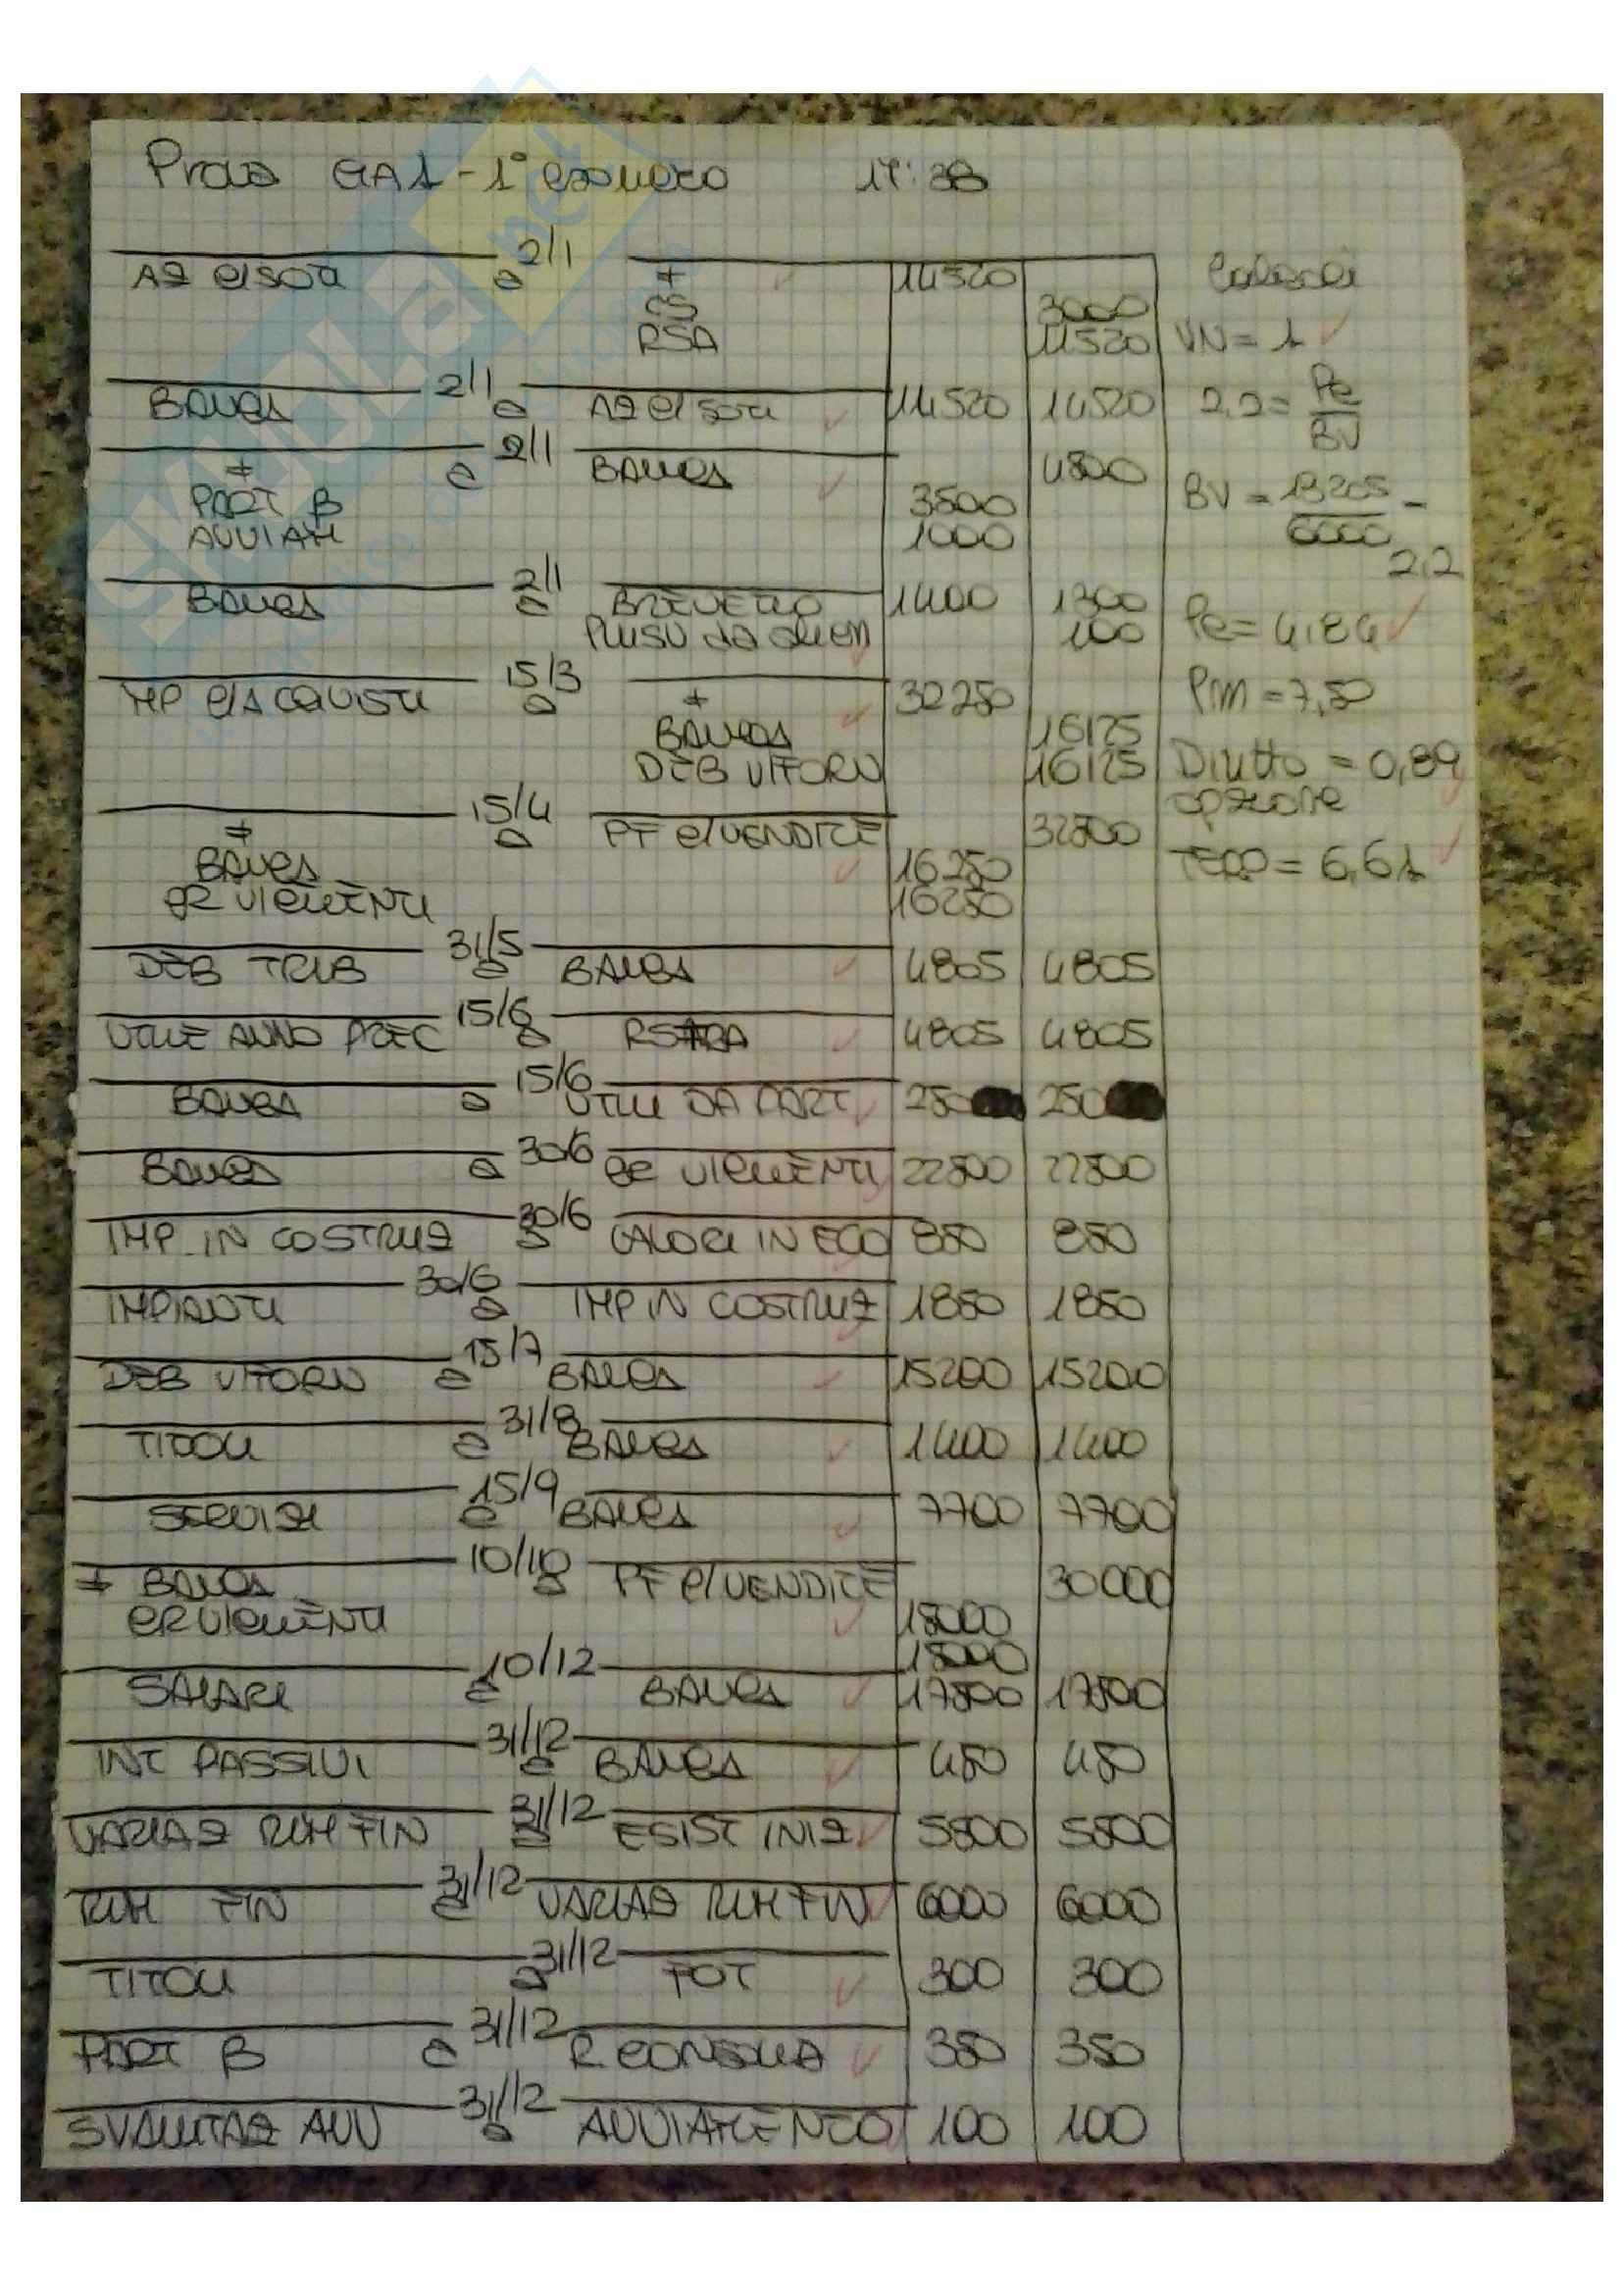 Prova GA1 - 1° esonero 17:38
2/1
AZ C/SOTT a ≠ 14520 Calcoli
CS 3000
RSA 11520 VN = 1
2/1
BANCA a AZ C/SOTT 14520 14520 2,2 = Pe / BV
2/1
≠ a BANCA 4500
PART B 3500 BV = 13205 / 6000 = 2,2
AVVIAM 1000
2/1
BANCA a BREVETTO 1400 1300
PLUSV da alien 100 Pe = 4,84
15/3
MP C/ACQUISTI a ≠ 32250 Pm = 7,50
BANCA 16125
DEB V/FORN 16125 Diritto = 0,89
opzione
15/4
≠ a PF C/VENDITE 32500
BANCA 16250 TERP = 6,61
CR V/CLIENTI 16250
31/5
DEB TRIB a BANCA 4805 4805
15/6
UTILE ANNO PREC a RSTRA 4805 4805
15/6
BANCA a UTILI DA PART 250 250
30/6
BANCA a CR V/CLIENTI 22500 22500
30/6
IMP IN COSTRUZ a VALORI IN ECO 850 850
30/6
IMPIANTI a IMP IN COSTRUZ 1850 1850
15/7
DEB V/FORN a BANCA 15200 15200
31/8
TITOLI a BANCA 1400 1400
15/9
SERVIZI a BANCA 7700 7700
10/10
≠ BANCA a PF C/VENDITE 30000
CR V/CLIENTI 15000
15000
10/12
SALARI a BANCA 17500 17500
31/12
INT PASSIVI a BANCA 450 450
31/12
VARIAZ RIM FIN a ESIST INIZ 5500 5500
31/12
RIM FIN a VARIAZ RIM FIN 6000 6000
31/12
TITOLI a FOT 300 300
31/12
PART B a R CONSOLIA 350 350
31/12
SVALUTAZ AVV a AVVIAMENTO 100 100